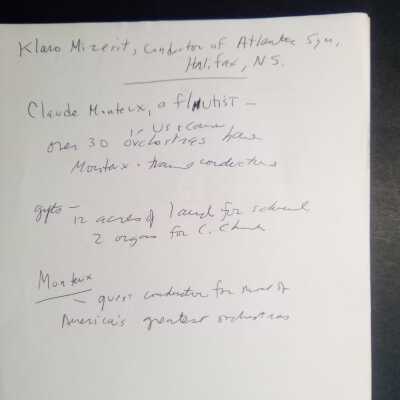 Klaro Mizerit, conductor of Atlantic Sym,
Halifax, N.S.
Claude Monteux, a flutist –
in US + Can
over 30 orchestras have
Monteux - trained conductors
gifts – 12 acres of land for school
2 organs for C. Church
Monteux
– guest conductor for most of
America's greatest orchestras